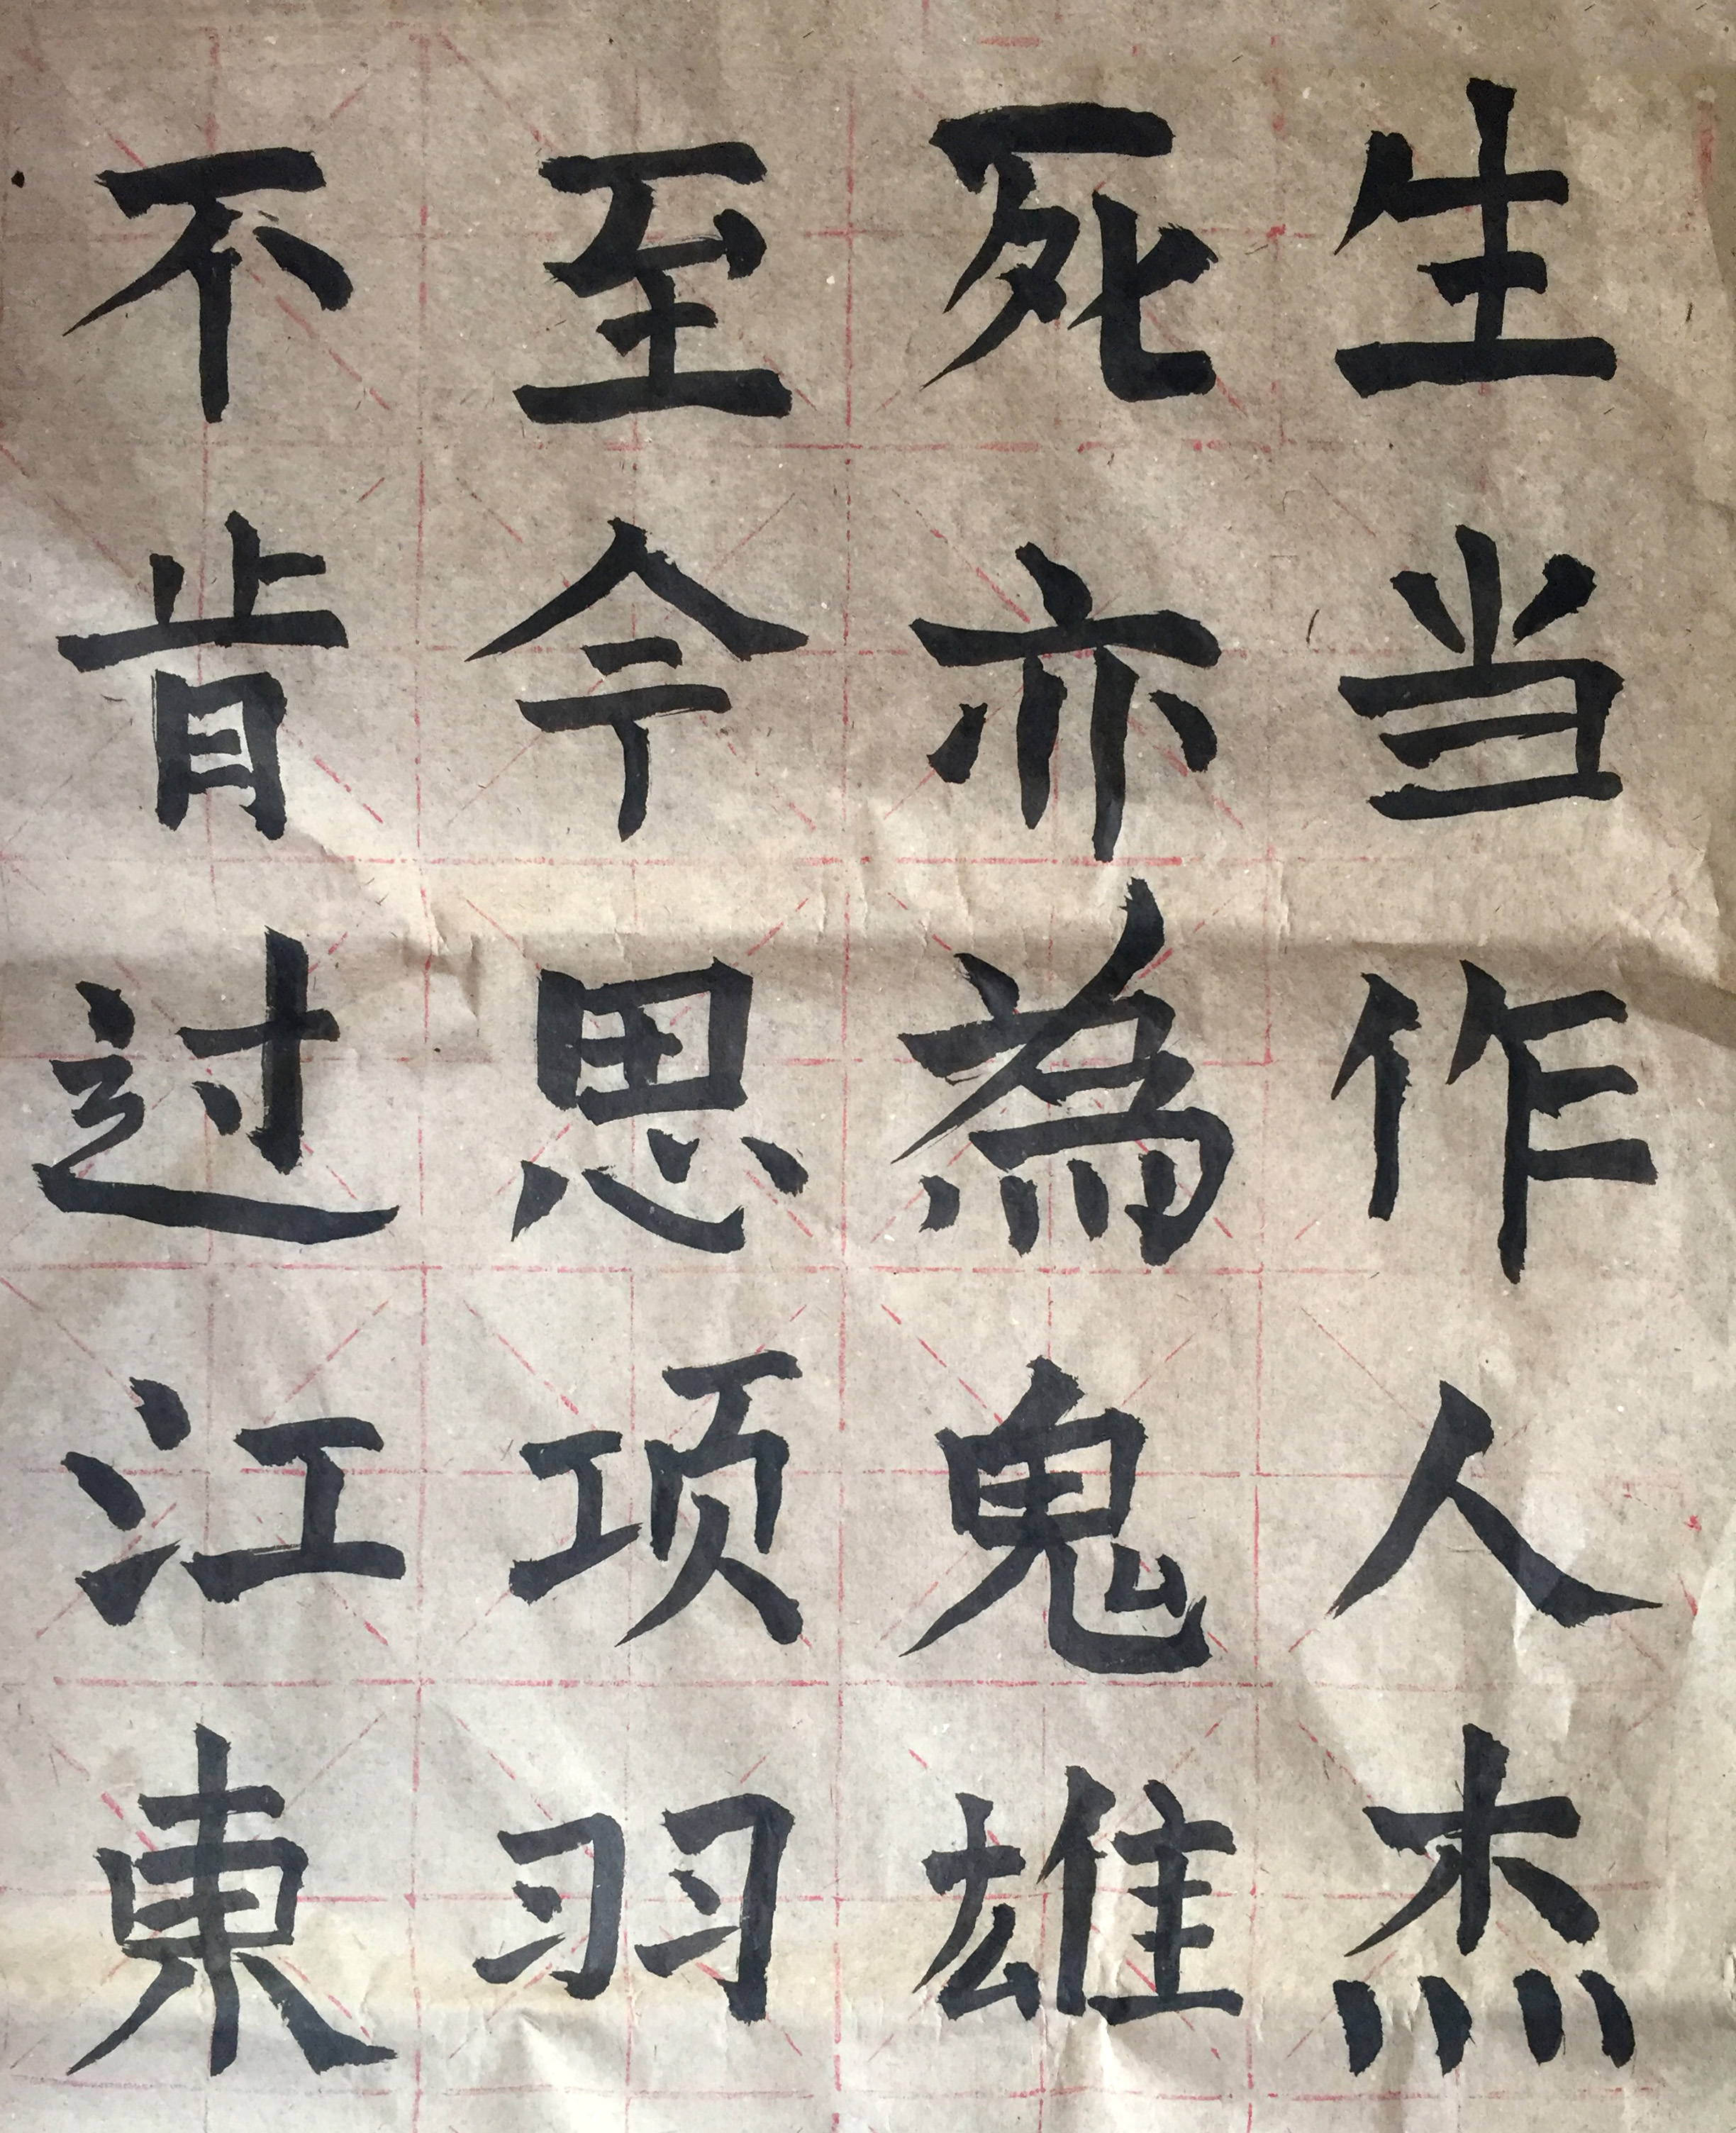 生当作人杰
死亦為鬼雄
至今思项羽
不肯过江東